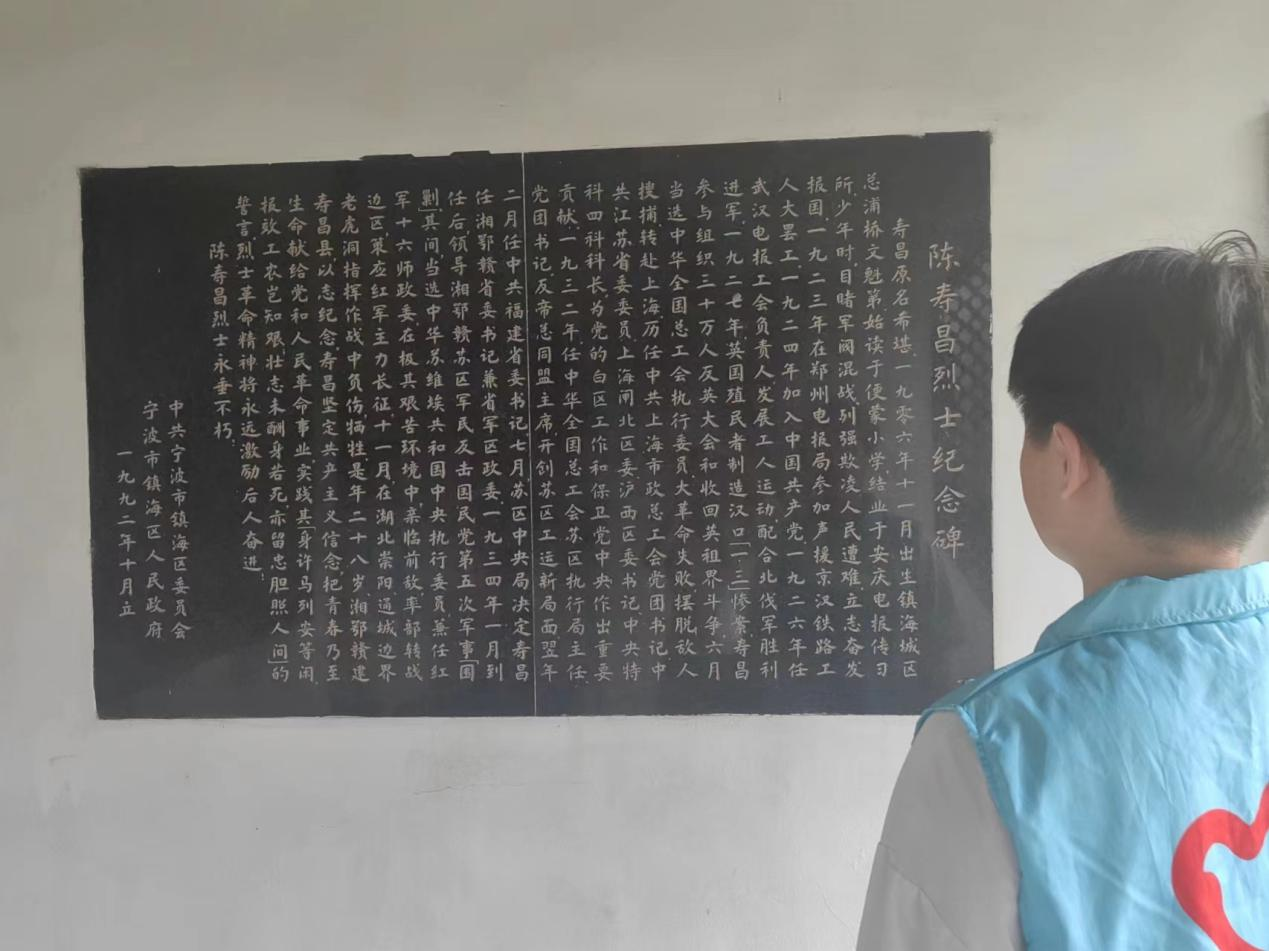 陈寿昌烈士纪念碑
寿昌原名希堪,一九零六年十一月出生镇海城区
总浦桥文魁第.始读于便蒙小学,结业于安庆电报传习
所.少年时,目睹军阀混战列强欺凌人民遭难,立志奋发
报国.一九二三年在郑州电报局参加声援京汉铁路工
人大罢工.一九二四年加入中国共产党.一九二六年任
武汉电报工会负责人发展工人运动配合北伐军胜利
进军.一九二七年英国殖民者制造汉口「一.三」惨案,寿昌
参与组织三十万人反英大会和收回英租界斗争.六月
当选中华全国总工会执行委员.大革命失败摆脱敌人
搜捕转赴上海历任中共上海市政总工会党团书记,中
共江苏省委委员,上海闸北区委,沪西区委书记,中央特
科四科科长,为党的白区工作和保卫党中央作出重要
贡献.一九三二年任中华全国总工会苏区执行局主任,
党团书记,反帝总同盟主席开创苏区工运新局面.翌年
二月任中共福建省委书记.七月苏区中央局决定寿昌
任湘鄂赣省委书记兼省军区政委.一九三四年一月到
任后,领导湘鄂赣苏区军民反击国民党第五次军事「围
剿」.其间,当选中华苏维埃共和国中央执行委员,兼任红
军十六师政委.在极其艰苦环境中,亲临前敌,率部转战
边区,策应红军主力长征.十一月,在湖北崇阳,通城边界
老虎洞指挥作战中负伤牺牲.是年二十八岁.湘鄂赣建
寿昌县以志纪念.寿昌坚定共产主义信念把青春乃至
生命献给党和人民革命事业,实践其「身许马列安等闲,
报效工农岂知艰,壮志未酬身若死,亦留忠胆照人间」的
誓言,烈士革命精神将永远激励后人奋进!
陈寿昌烈士永垂不朽!
中共宁波市镇海区委员会
宁波市镇海区人民政府
一九九二年十月立